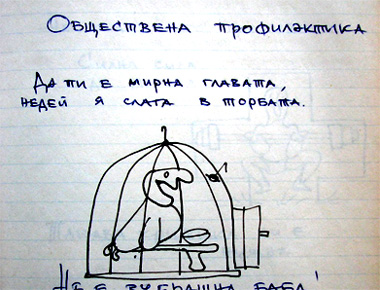 Обществена профилактика
Да ти е мирна главата,
недей я слага в торбата.
Не е